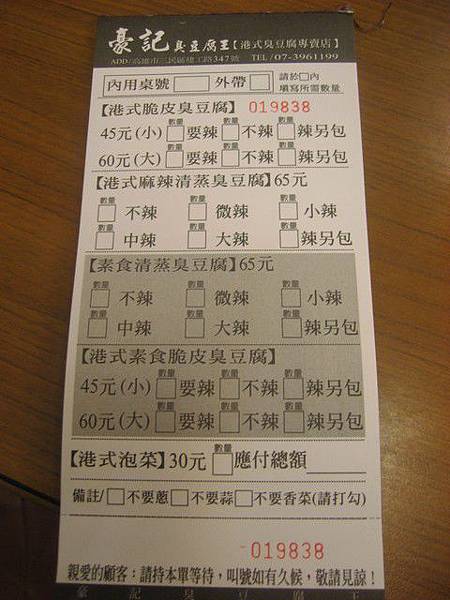 豪記臭豆腐王【港式臭豆腐專賣店】
ADD/高雄市三民區建工路347號 TEL/07-3961199
內用桌號□ 外帶□ 請於□內填寫所需數量
【港式脆皮臭豆腐】 019838
數量 數量 數量
45元(小)□要辣□不辣□辣另包
數量 數量 數量
60元(大)□要辣□不辣□辣另包
【港式麻辣清蒸臭豆腐】65元
數量 數量 數量
□不辣 □微辣 □小辣
數量 數量 數量
□中辣 □大辣 □辣另包
【素食清蒸臭豆腐】65元
數量 數量 數量
□不辣 □微辣 □小辣
數量 數量 數量
□中辣 □大辣 □辣另包
【港式素食脆皮臭豆腐】
數量 數量 數量
45元(小)□要辣□不辣□辣另包
數量 數量 數量
60元(大)□要辣□不辣□辣另包
數量
【港式泡菜】30元□應付總額
備註/□不要蔥□不要蒜□不要香菜(請打勾)
-019838
親愛的顧客：請持本單等待，叫號如有久候，敬請見諒！
豪記臭豆腐王